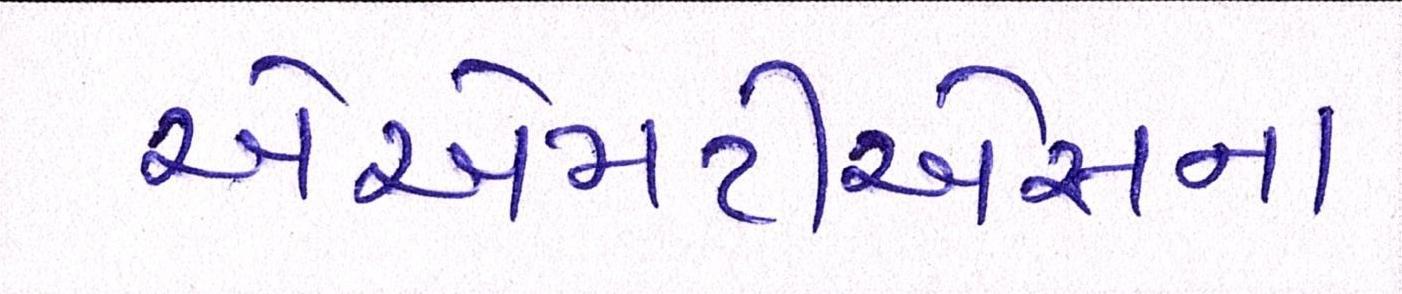 એએમટીએસના